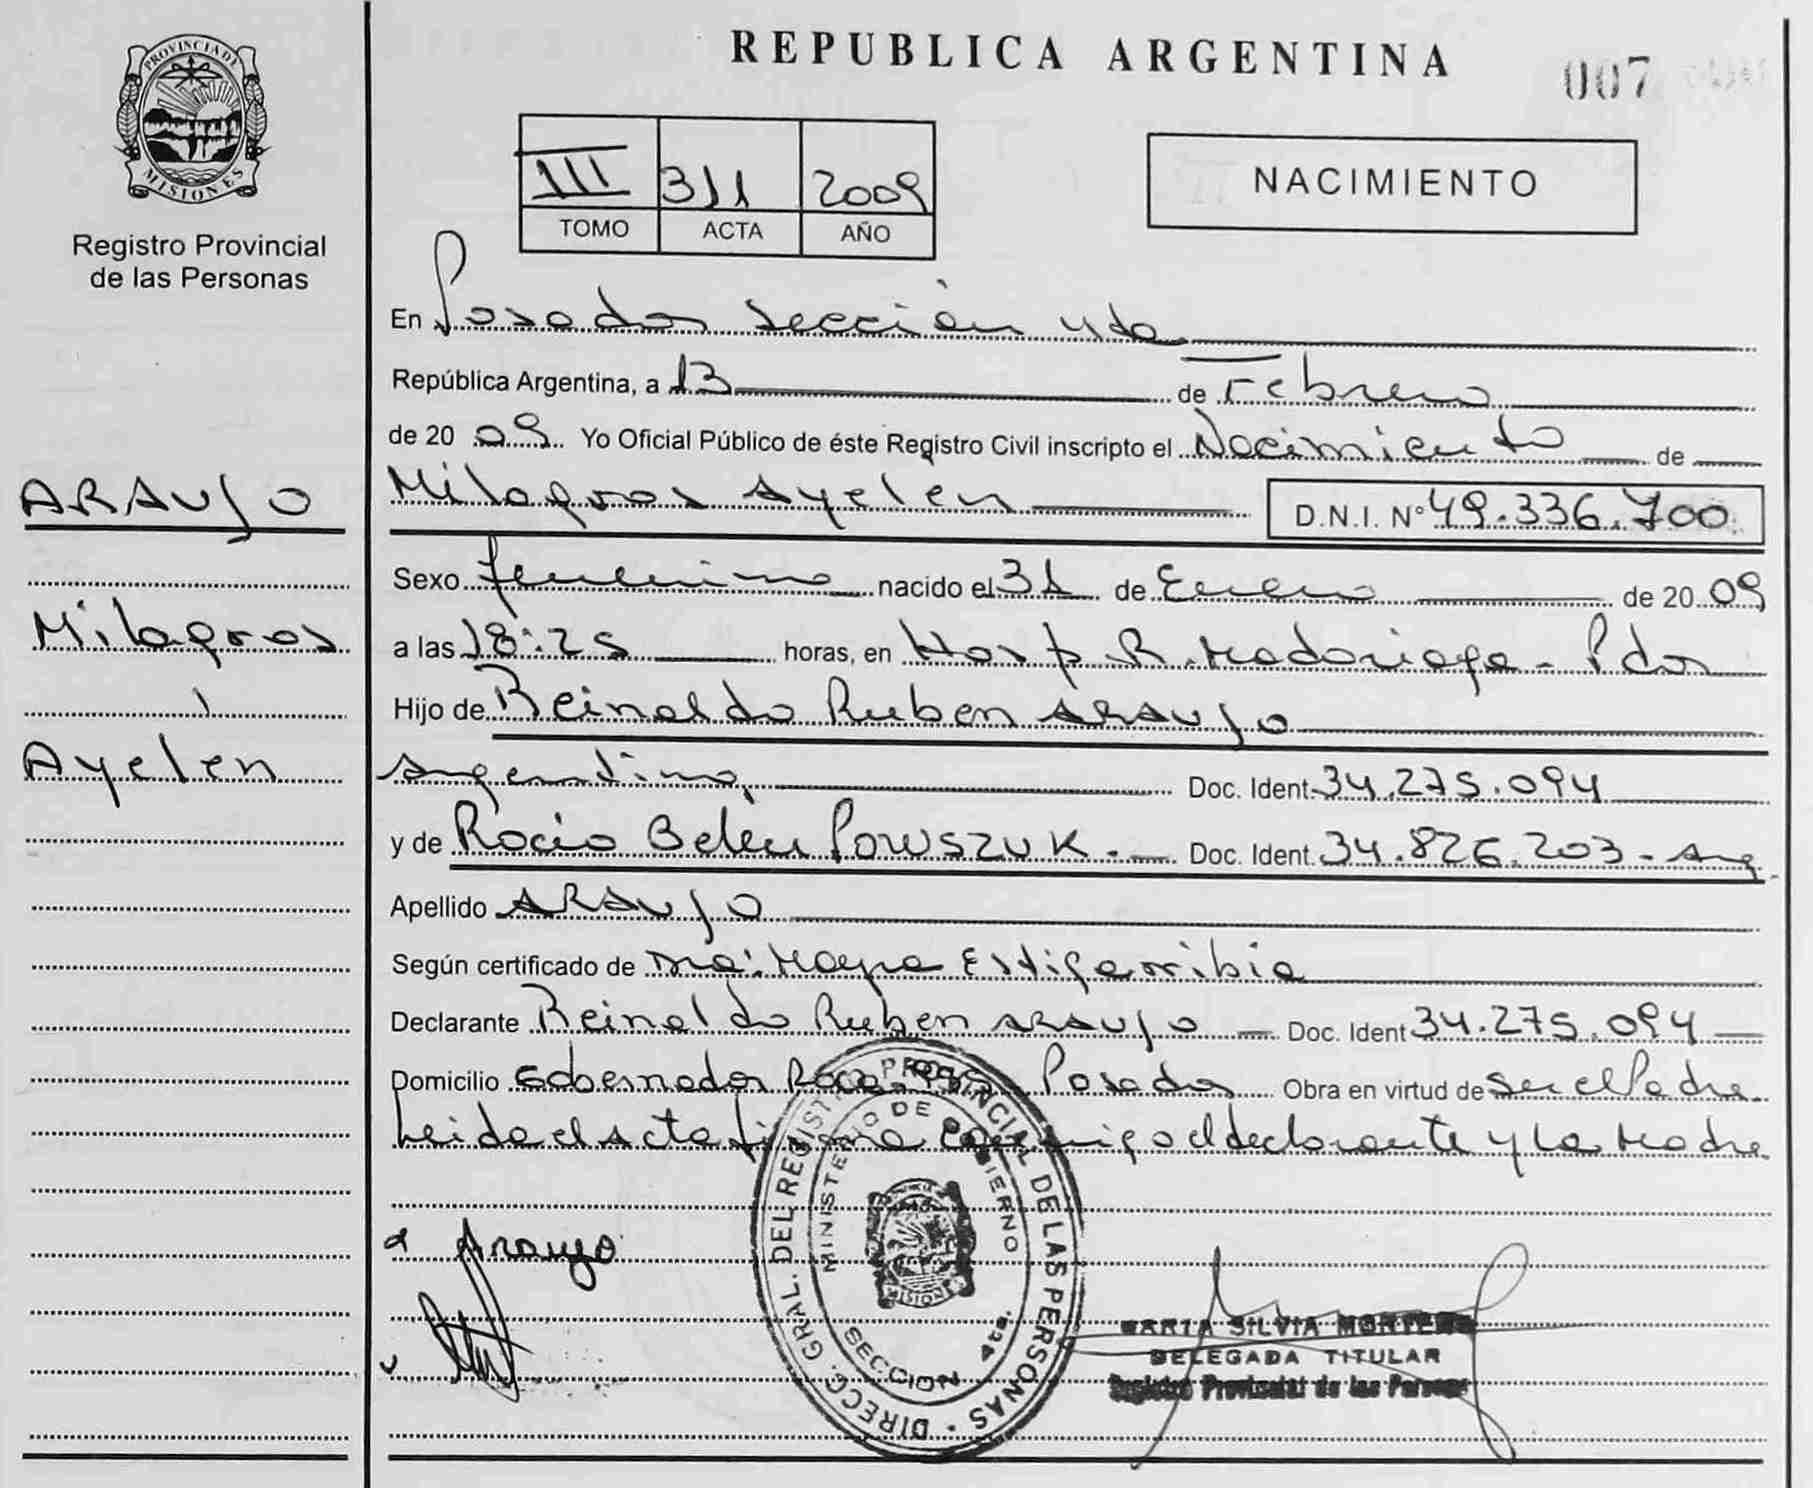 PROVINCIA DE
MISIONES
Registro Provincial
de las Personas
REPUBLICA ARGENTINA
007
III 311 2009
TOMO ACTA AÑO
NACIMIENTO
En Posadas sección 4ta
República Argentina, a 13 de Febrero
de 20 09 Yo Oficial Público de éste Registro Civil inscripto el Nacimiento de
ARAUJO
Milagros Ayelen D.N.I. N° 49.336.700
Sexo femenino nacido el 31 de Enero de 20 09
Milagros
a las 18:25 horas, en Hosp R. Madariaga - Pdas
Hijo de Reinaldo Ruben ARAUJO
Ayelen
Argentino, Doc. Ident. 34.275.094
y de Rocio Belén Powszuk. Doc. Ident. 34.826.203 - Arg
Apellido ARAUJO
Según certificado de Estigarribia
Declarante Reinaldo Ruben ARAUJO Doc. Ident 34.275.094
Domicilio Gobernador Roca Posadas Obra en virtud de Ser el Padre
Leida el acta firma conmigo el declarante y la Madre
Araujo
DIRECC. GRAL. DEL REGISTRO PROVINCIAL DE LAS PERSONAS
MINISTERIO DE GOBIERNO
MISIONES
SECCION 4ta.
MARTA SILVIA
DELEGADA TITULAR
Registro Provincial de las Personas